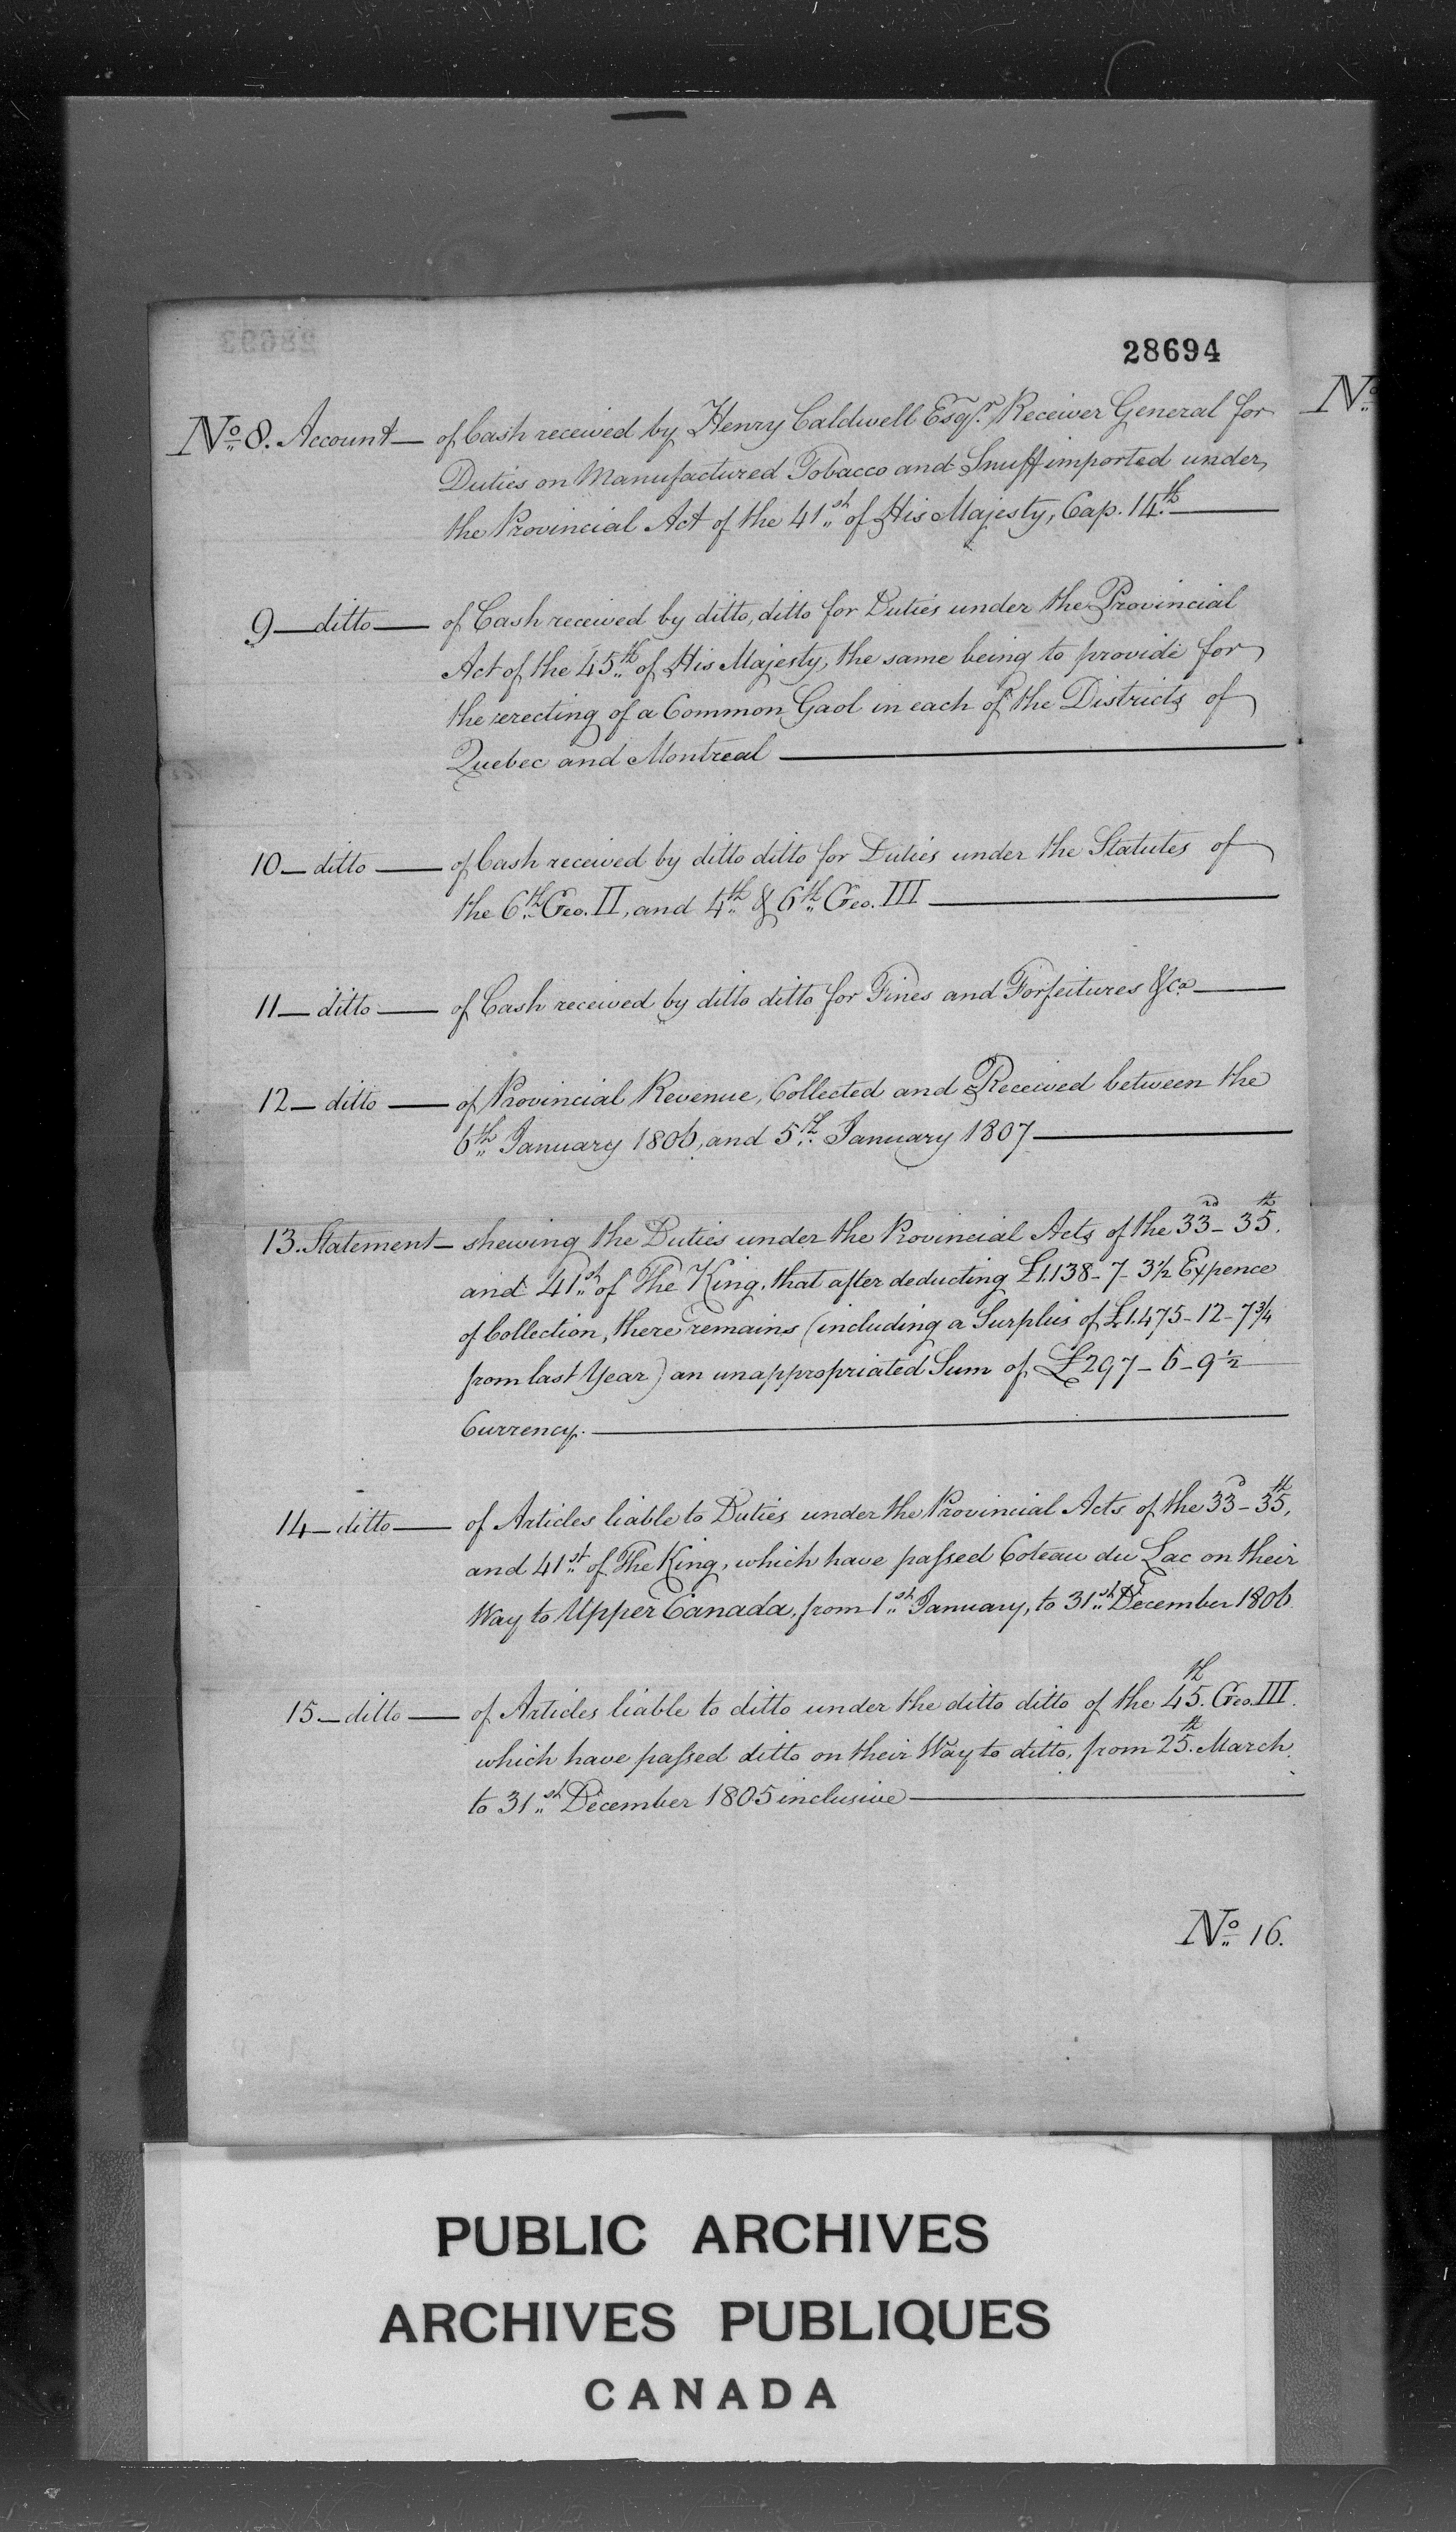 28694
No. 8. Account — of Cash received by Henry Caldwell Esqr. Receiver General for
Duties on Manufactured Tobacco and Snuff imported under
the Provincial Act of the 41st of His Majesty, Cap. 14th —
9 — ditto — of Cash received by ditto, ditto for Duties under the Provincial
Act of the 45th of His Majesty, the same being to provide for
the erecting of a Common Gaol in each of the Districts of
Quebec and Montreal —
10 — ditto — of Cash received by ditto ditto for Duties under the Statutes of
the 6th Geo. II, and 4th & 6th Geo. III —
11 — ditto — of Cash received by ditto ditto for Fines and Forfeitures &ca —
12 — ditto — of Provincial Revenue, Collected and Received between the
6th January 1806, and 5th January 1807 —
13. Statement — shewing the Duties under the Provincial Acts of the 33rd - 35th.
and 41st of The King, that after deducting £1.138 - 7 - 3½ Expence
of Collection, there remains (including a Surplus of £1.475 - 12 - 7¾
from last Year) an unappropriated Sum of £297 - 6 - 9½
Currency. —
14 — ditto — of Articles liable to Duties under the Provincial Acts of the 33d - 35th,
and 41st of The King, which have passed Coteau du Lac on their
Way to Upper Canada, from 1st January, to 31st December 1806
15 — ditto — of Articles liable to ditto under the ditto ditto of the 45th. Geo. III.
which have passed ditto on their Way to ditto, from 25th. March
to 31st December 1805 inclusive —
No. 16.
No.
PUBLIC ARCHIVES
ARCHIVES PUBLIQUES
CANADA